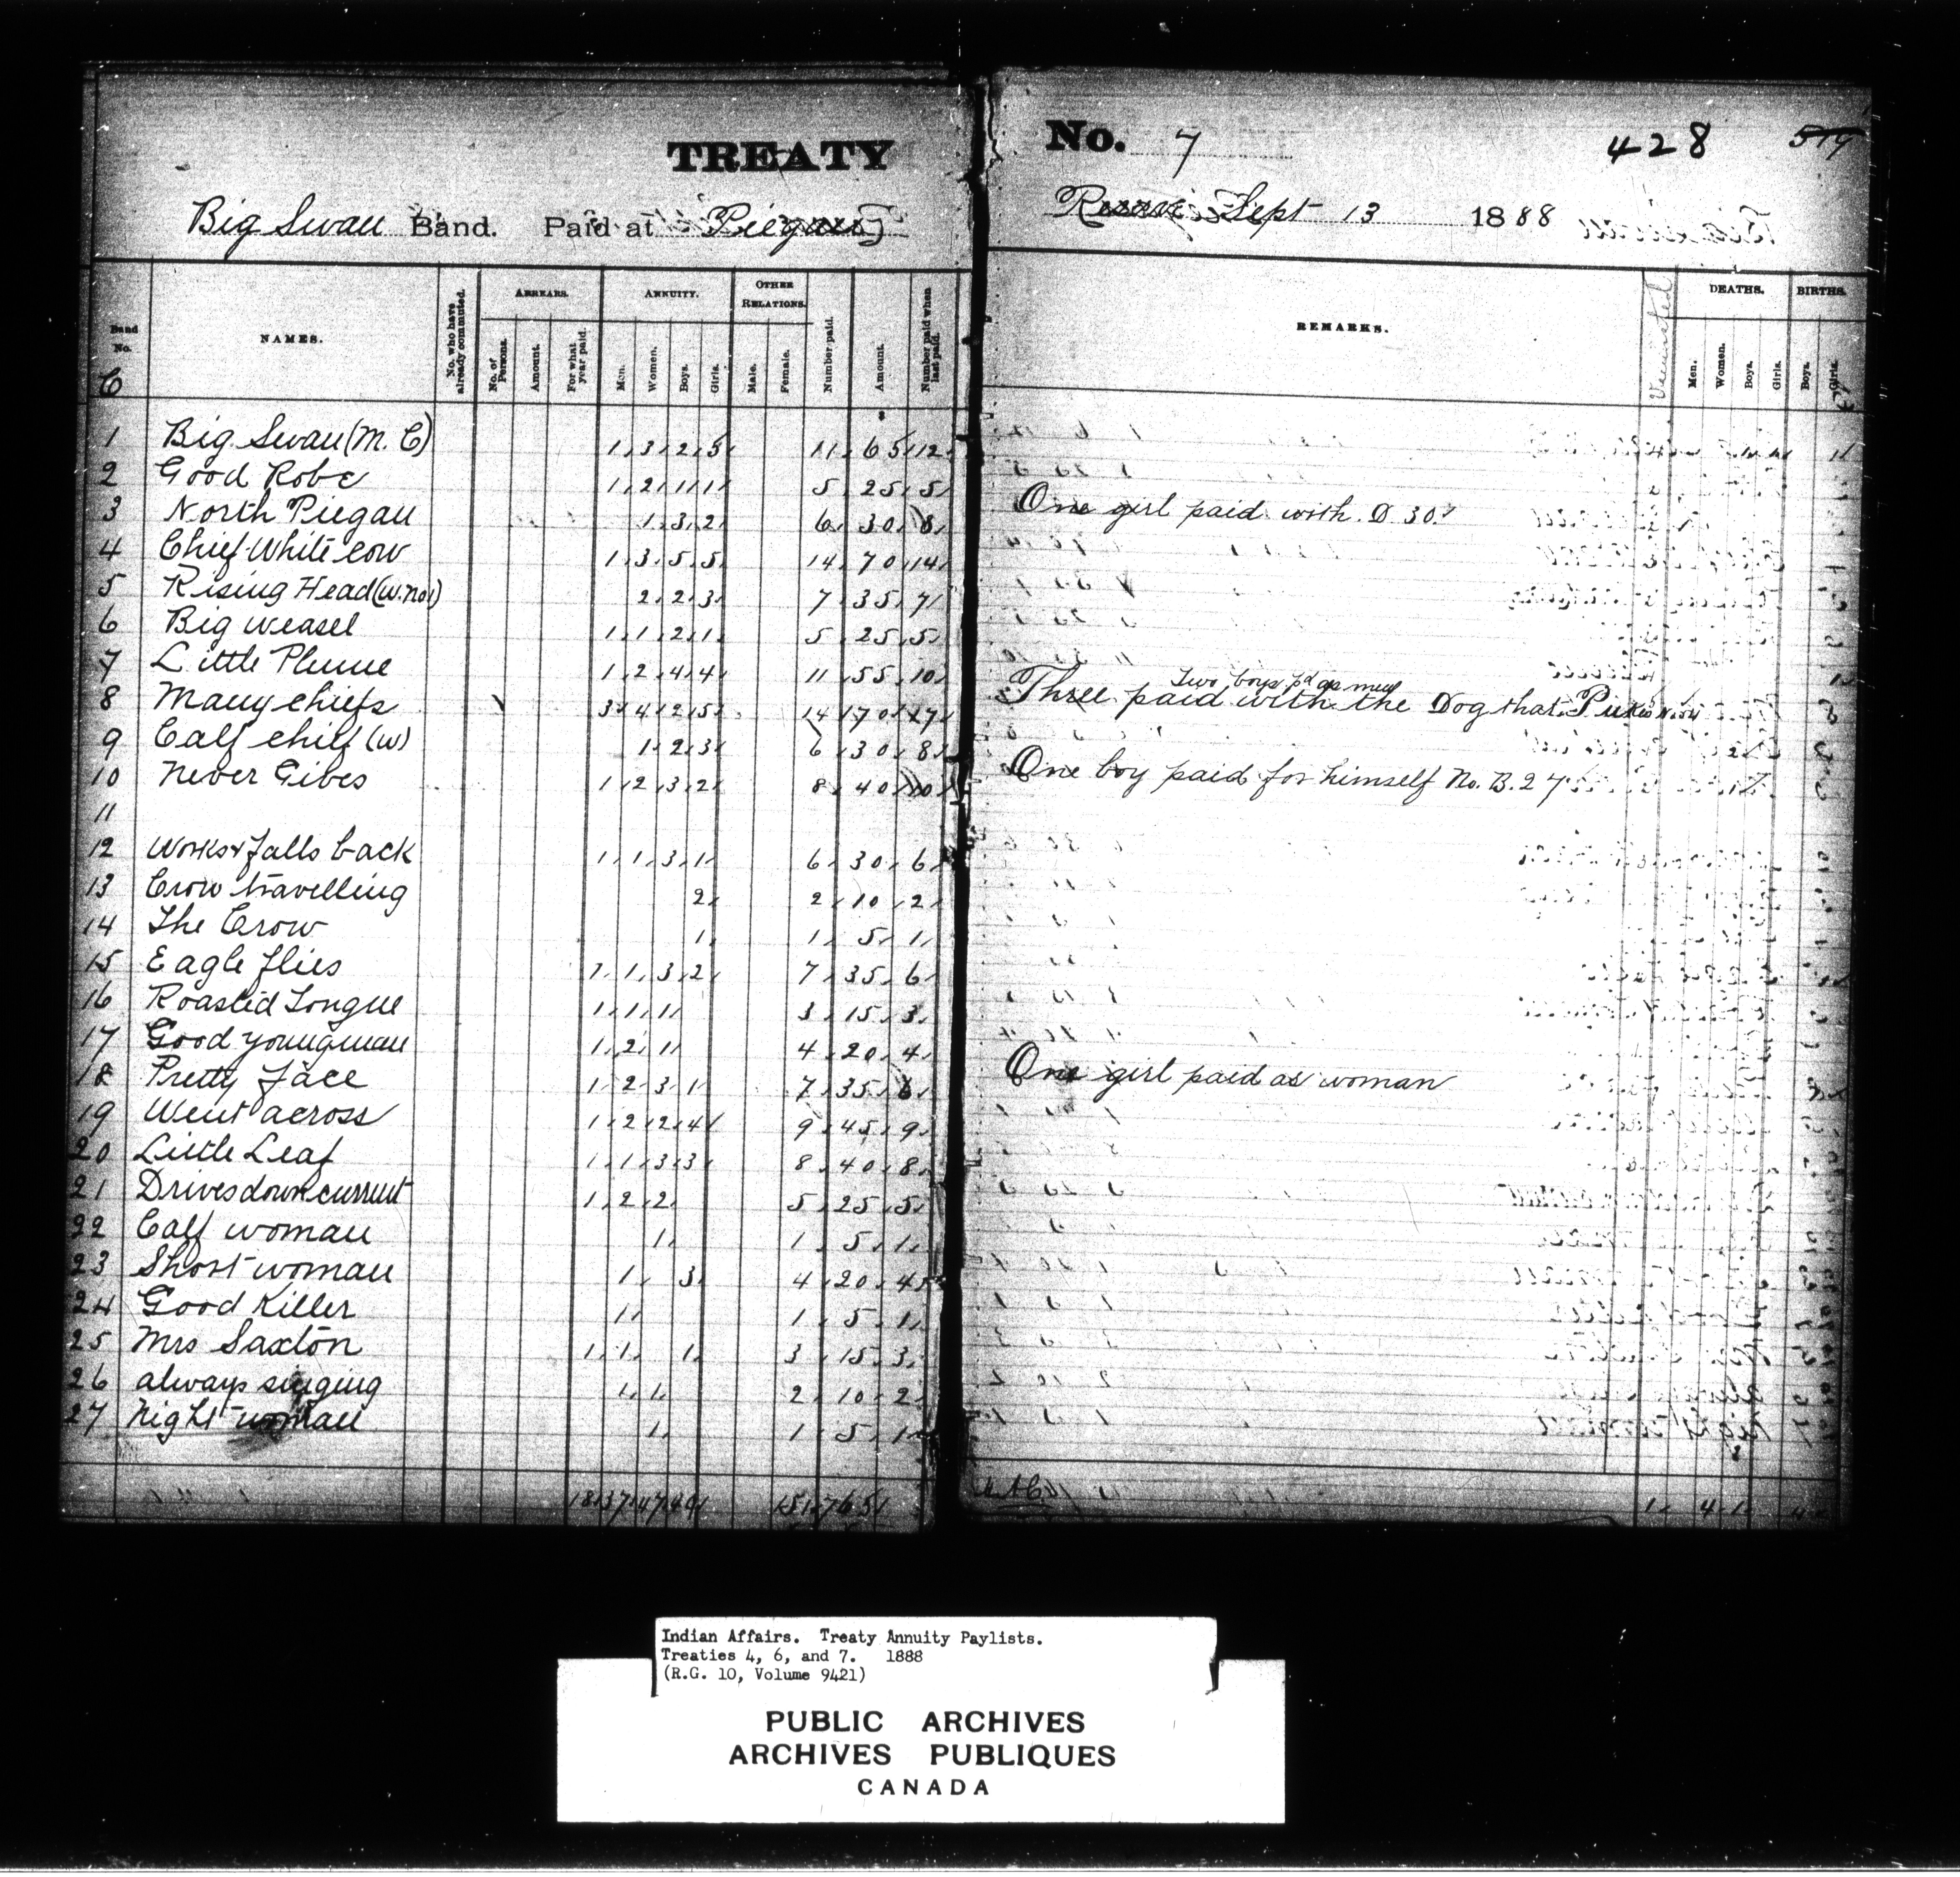 TREATY No. 7 428 519
Big Swan Band. Paid at Piegan Reserve Sept 13 1888
Band No. NAMES. No. who have already commuted. ARREARS. No. of Persons. Amount. For what year paid. ANNUITY. Men. Women. Boys. Girls. OTHER RELATIONS. Male. Female. Number paid. Amount. Number paid when last paid. REMARKS. DEATHS. Men. Women. Boys. Girls. BIRTHS. Boys. Girls.
C
1 Big Swan (M. C) 1 3 2 5 11 65 12
2 Good Robe 1 2 1 1 5 25 5
3 North Piegan 1 3 2 6 30 8 One girl paid with D 30
4 Chief White Cow 1 3 5 5 14 70 14
5 Rising Head (W. No 1) 2 2 3 7 35 7
6 Big weasel 1 1 2 1 5 25 5
7 Little Plume 1 2 4 4 11 55 10
Two boys pd as men
8 Many chiefs 3 4 2 5 14 70 17 Three paid with the Dog that
9 Calf chief (W) 1 2 3 6 30 8
10 Never Gives 1 2 3 2 8 40 10 One boy paid for himself No. B. 27
11
12 Works & falls back 1 1 3 1 6 30 6
13 Crow travelling 2 2 10 2
14 The Crow 1 1 5 1
15 Eagle flies 1 1 3 2 7 35 6
16 Roasted Tongue 1 1 1 3 15 3
17 Good young man 1 2 1 4 20 4
18 Pretty face 1 2 3 1 7 35 6 One girl paid as woman
19 Went across 1 2 2 4 9 45 9
20 Little Leaf 1 1 3 3 8 40 8
21 Drives down current 1 2 2 5 25 5
22 Calf woman 1 1 5 1
23 Short woman 1 3 4 20 4
24 Good Killer 1 1 5 1
25 Mrs Saxton 1 1 1 3 15 3
26 always singing 1 1 2 10 2
27 Night woman 1 1 5 1
18 37 47 49 151 765 1 4 1 4
Indian Affairs. Treaty Annuity Paylists.
Treaties 4, 6, and 7. 1888
(R.G. 10, Volume 9421)
PUBLIC ARCHIVES
ARCHIVES PUBLIQUES
CANADA